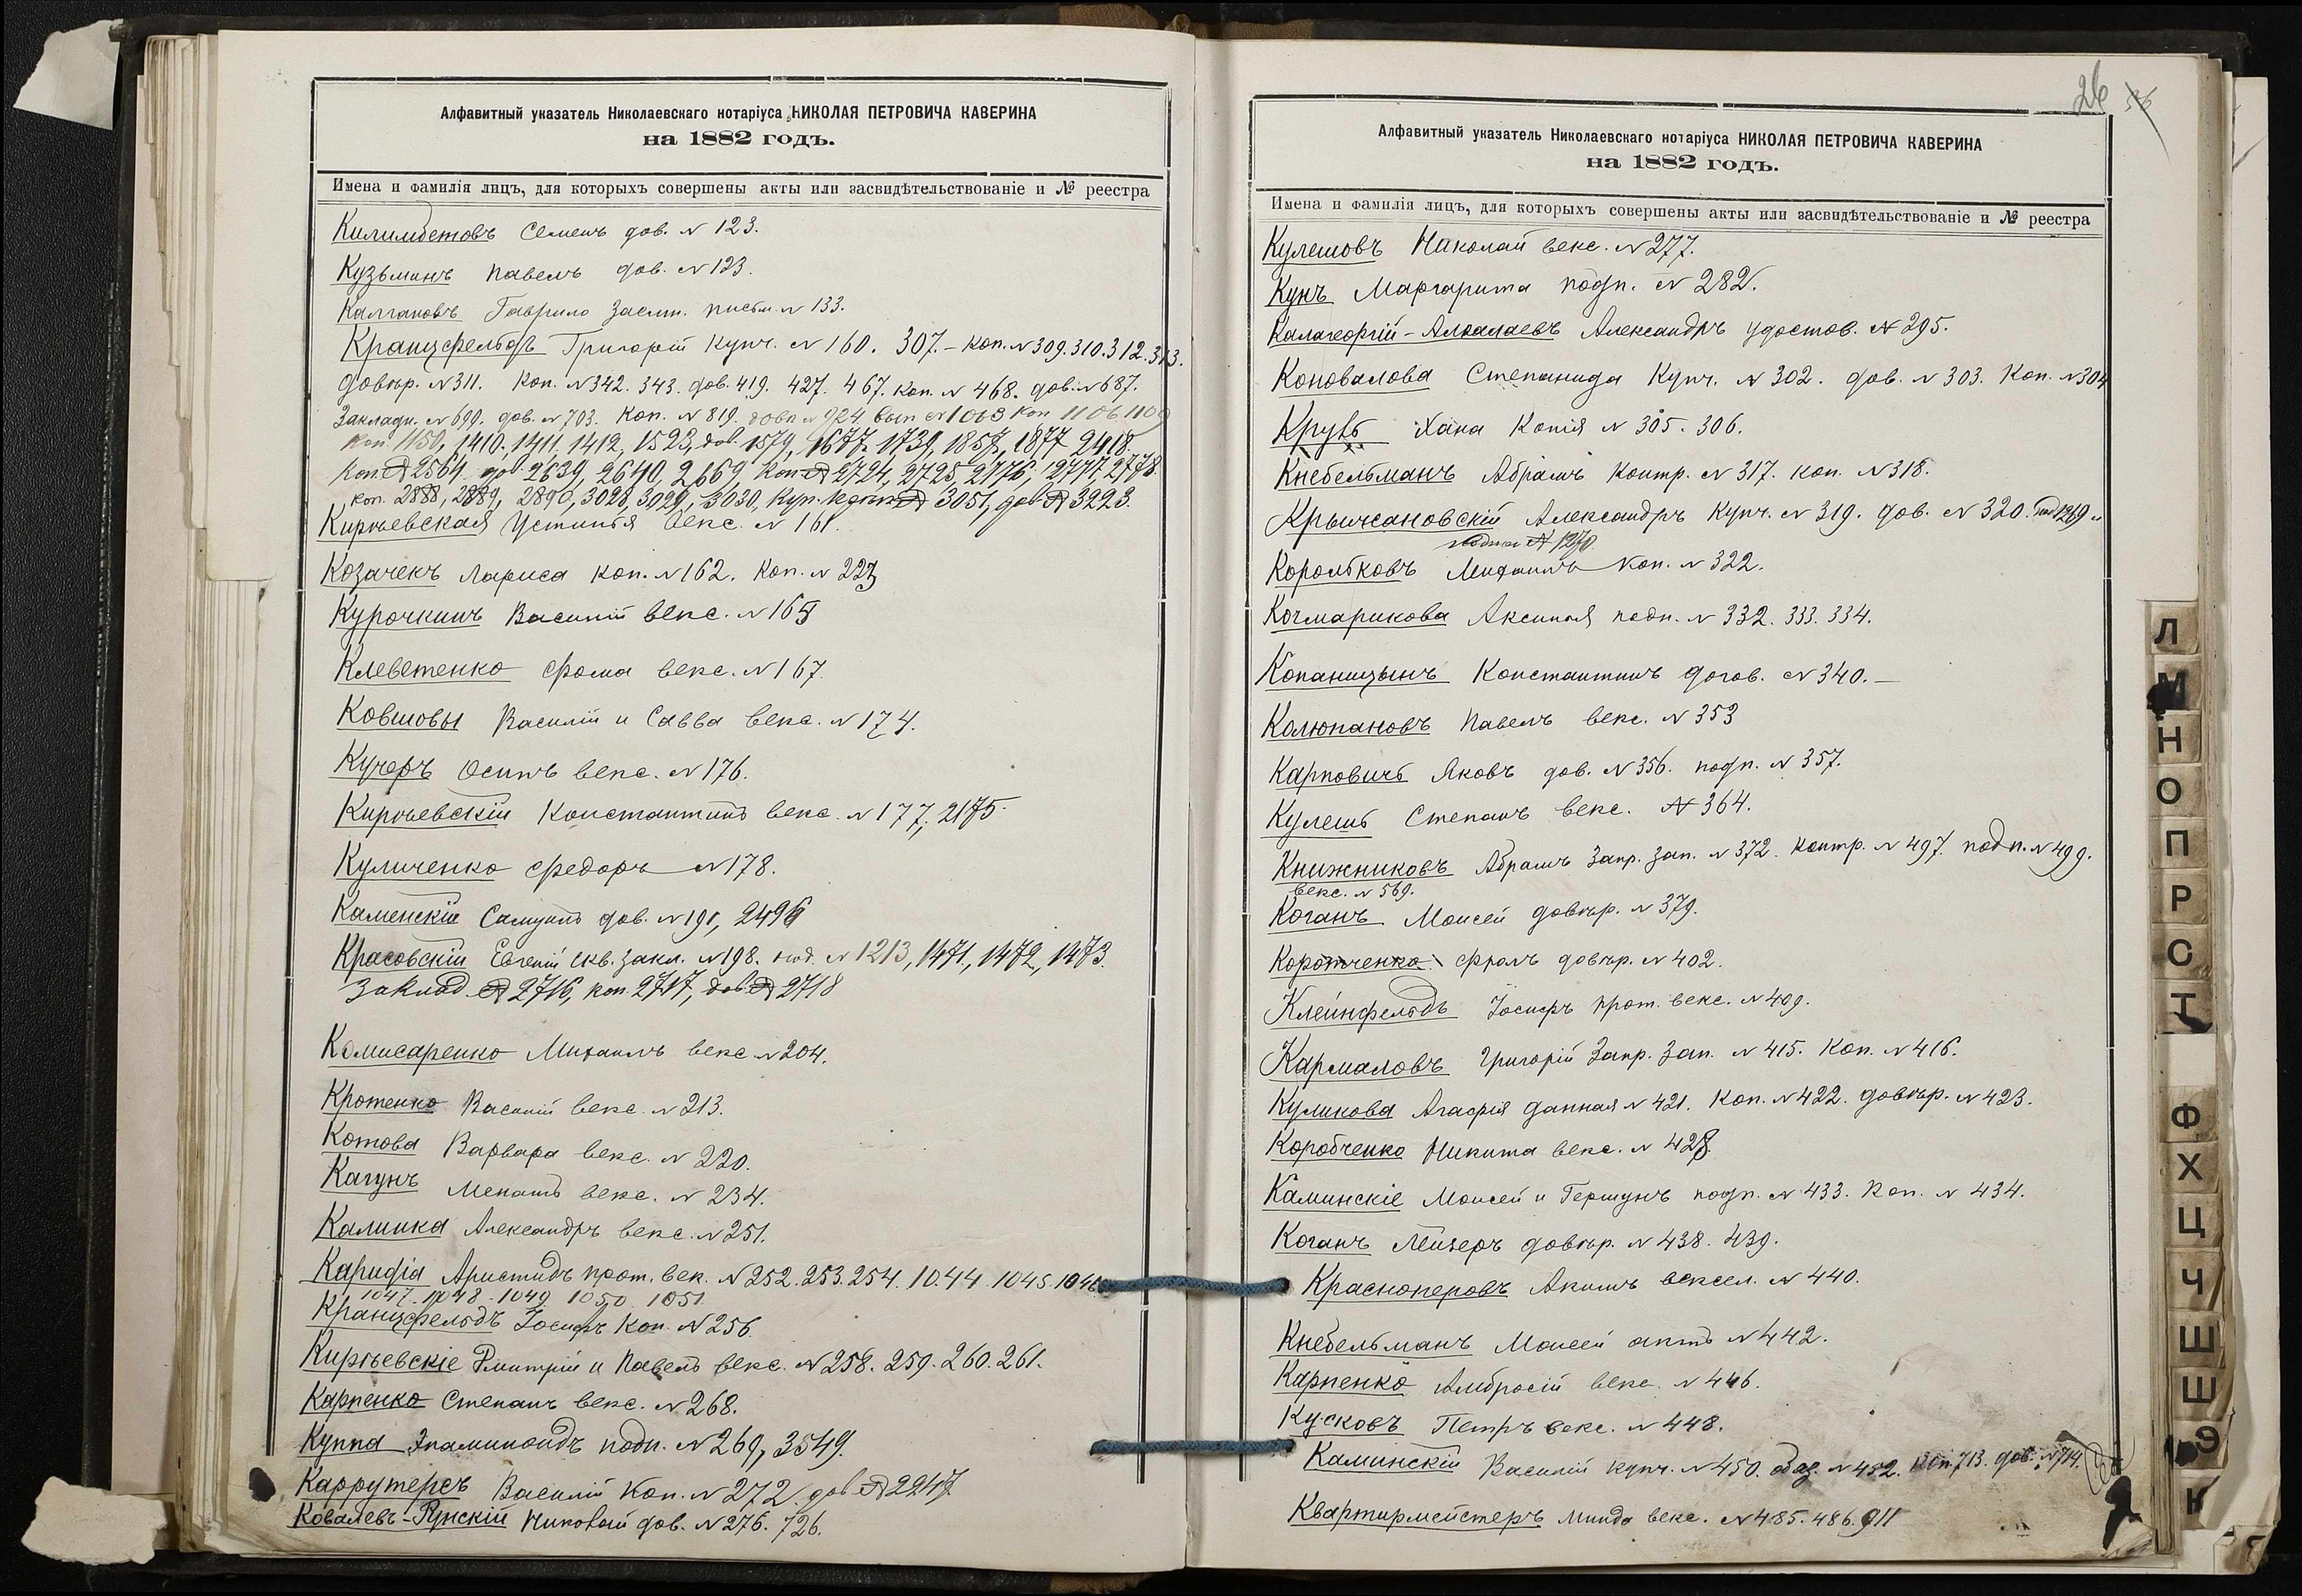 Алфавитный указатель Николаевскаго нотаріуса НИКОЛАЯ ПЕТРОВИЧА КАВЕРИНА
на 1882 годъ.
Имена и фамилія лицъ, для которыхъ совершены акты или засвидѣтельствованіе и № реестра
Килимбетовъ Семенъ дов. N 123.
Кузьминъ Павелъ дов. N 123.
Калгановъ Гаврило Заемн. письм. N 133.
Кранцфельдъ Григорій купч. N 160. 307. – коп. N 309. 310. 312. 313.
довѣр. N 311. Коп. N 342. 343. дов. 419. 427. 467. коп. N 468. дов. N 687.
Закладн. N 699. дов. N 703. Коп. N 819. довѣ N 924 вып N 1063 Коп 1106 1109
Коп. 1150, 1410, 1411, 1412, 1523, дов. 1579, 1677, 1739, 1857, 1877 2418.
Коп. N 2564. дов. 2639, 2640, 2669, Коп N 2724, 2725, 2776, 2777, 2778
коп. 2888, 2889, 2890, 3028, 3029, 3030, Куп. N 3051, дов N 3223.
Кирѣевская Устинья векс. N 161.
Козачекъ Лариса коп. N 162. Коп. N 227
Курочкинъ Василій векс. N 165
Клеветенко Фома векс. N 167.
Ковшовы Василій и Савва векс. N 174.
Кучеръ Осипъ векс. N 176.
Кирѣевскій Константинъ векс. N 177, 2175.
Куличенко Федоръ N 178.
Каменскій Самуилъ дов. N 191, 2496
Красовскій Евгеній скв. закл. N 198. под. N 1213, 1471, 1472, 1473.
Заклад N 2716, коп. 2717, дов N 2718
Комисаренко Михаилъ векс. N 204.
Кротенко Василій векс. N 213.
Котова Варвара векс. N 220.
Кагунъ Менашъ векс. N 234.
Калинка Александръ векс. N 251.
Каридіа Аристидъ прот. век. N 252. 253. 254. 1044. 1045. 1046
1047. 1048. 1049 1050. 1051.
Кранцфельдъ Іосифъ Коп. N 256.
Кирѣевскіе Дмитрій и Павелъ векс. N 258. 259. 260. 261.
Карпенко Степанъ векс. N 268.
Куппа Эпаминондъ подп. N 269, 3549.
Каррутерсъ Василій Коп. N 272. дов N 2247
Ковалевъ-Рунскій Николай дов. N 276. 726.
26
Алфавитный указатель Николаевскаго нотаріуса НИКОЛАЯ ПЕТРОВИЧА КАВЕРИНА
на 1882 годъ.
Имена и фамилія лицъ, для которыхъ совершены акты или засвидѣтельствованіе и № реестра
Кулешовъ Николай векс. N 277.
Кунъ Маргарита подп. N 282.
Калагеоргій-Алкалаевъ Александръ удостов. N 295.
Коновалова Степанида Купч. N 302. дов. N 303. Коп. N 304
Круть Хана Копія N 305. 306.
Кнебельманъ Абрамъ Контр. N 317. коп. N 318.
Крыжановскій Александръ Купч. N 319. дов. N 320. под 1269 и
подп N 1270.
Корольковъ Михаилъ коп. N 322.
Кочмарикова Аксинья подп. N 332. 333. 334.
Копаницынъ Константинъ догов. N 340. –
Колюпановъ Павелъ векс. N 353
Карповичъ Яковъ дов. N 356. подп. N 357.
Кулешъ Степанъ векс. N 364.
Книжниковъ Абрамъ Запр. зап. N 372. контр. N 497. подп. N 499.
векс. N 569.
Коганъ Моисей довѣр. N 379.
Коротченко Фролъ довѣр. N 402.
Клейнфельдъ Іосифъ прот. векс. N 409.
Кармаловъ Григорій Запр. Зап. N 415. Коп. N 416.
Куликова Агафія данная N 421. Коп. N 422. довѣр. N 423.
Коробченко Никита векс. N 428.
Каминскіе Моисей и Гершунъ подп. N 433. Коп. N 434.
Коганъ Лейзеръ довѣр. N 438. 439.
Красноперовъ Акимъ вексел. N 440.
Кнебельманъ Моисей актъ N 442.
Карпенко Амбросій векс. N 446.
Кусковъ Петръ векс. N 448.
Каминскій Василій купч. N 450. обяз. N 452. Коп. 713. дов. N 714.
Квартирмейстеръ Минда векс. N 485. 486. 911
Л
М
Н
О
П
Р
С
Т
Ф
Х
Ц
Ч
Ш
Щ
Э
К